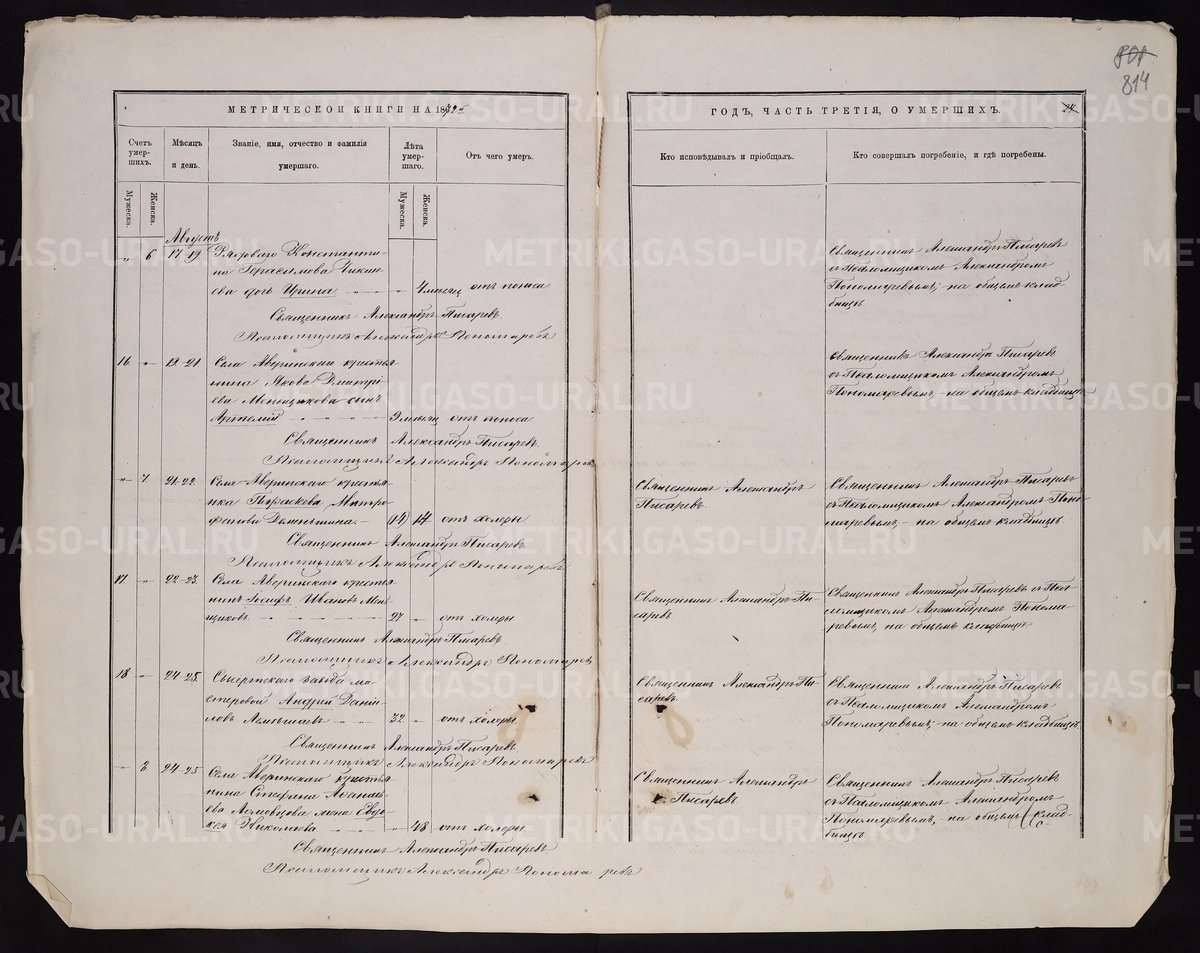 801
814
МЕТРИЧЕСКОЙ КНИГИ НА 1872й
ГОДЪ, ЧАСТЬ ТРЕТІЯ, О УМЕРШИХЪ.
Счетъ умер-шихъ.
Мѣсяцъ и день.
Званіе, имя, отчество и фамилія умершаго.
Лѣта умер-шаго.
Отъ чего умеръ.
Кто исповѣдывалъ и пріобщалъ.
Кто совершалъ погребеніе, и гдѣ погребены.
Мужеска.
Женска.
Мужеска.
Женска.
Августъ
6 17-19 Рядового Константи-
на Герасимова
дочь Ирина 4 месяц отъ поноса
Священникъ Александръ Писаревъ
Псаломщикъ Александръ Пономаревъ
Священникъ Александръ Писаревъ
съ Псаломщикомъ Александромъ
Пономаревымъ, на общемъ клад-
бищѣ
16 19-21 Села Аверинскаго крестья-
нина Якова Дмитрі-
ева Меньщикова сынъ
Артемій 9 месяц отъ поноса
Священникъ Александръ Писаревъ
Псаломщикъ Александръ Пономаревъ
Священникъ Александръ Писаревъ
съ Псаломщикомъ Александромъ
Пономаревымъ, на общемъ кладбищѣ
7 21-22 Села Аверинскаго крестья-
нка Параскева Митро-
фанова 14 отъ холеры
Священникъ Александръ Писаревъ
Псаломщикъ Александръ Пономаревъ
Священникъ Александръ
Писаревъ.
Священникъ Александръ Писаревъ
съ Псаломщикомъ Александромъ Поно-
маревымъ, - на общемъ кладбищѣ
17 22-23 Села Аверинскаго кресть-
нинъ Іосифъ Ивановъ Мен-
щиковъ 27 отъ холеры
Священникъ Александръ Писаревъ
Псаломщикъ Александръ Пономаревъ
Священникъ Александръ Пи-
саревъ
Священникъ Александръ Писаревъ съ Пса-
ломщикомъ Александромъ Понома-
ревымъ, на общемъ кладбищѣ
18 24-25 Сысертскаго завода ма-
стеровой Андрей Дані-
ловъ 32 отъ холеры
Священникъ Александръ Писаревъ
Псаломщикъ Александръ Пономаревъ
Священникъ Александръ Пи-
саревъ
Священникъ Александръ Писаревъ
съ Псаломщикомъ Александромъ
Пономаревымъ, на общемъ кладбищѣ
8 24-25 Села Аверинскаго крестья-
нина Стефана
жена Евдо-
кія Николаева 48 отъ холеры
Священникъ Александръ Писаревъ
Псаломщикъ Александръ Пономаревъ
Священникъ Александръ
Писаревъ
Священникъ Александръ Писаревъ
съ Псаломщикомъ Александромъ
Пономаревымъ, на общемъ клад-
бищѣ
METRIKI.GASO-URAL.RU